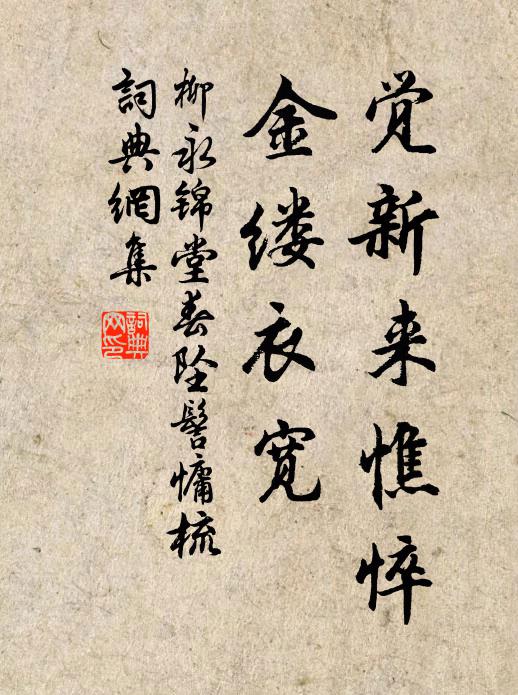 觉新来憔悴
金缕衣宽
柳永锦堂春坠髻慵梳
詞典網集
詞典
网印